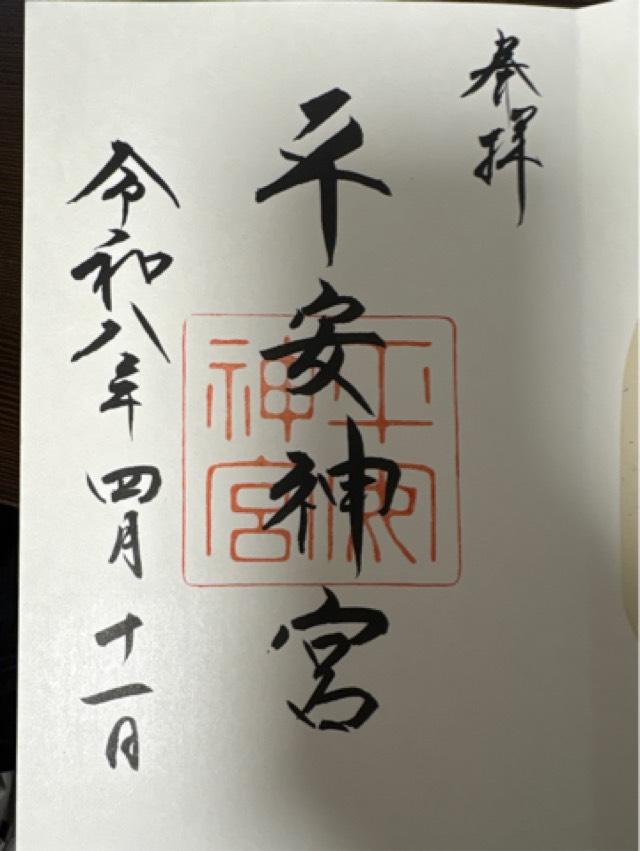 奉拝
平安神宮
令和八年四月十一日
平安神宮